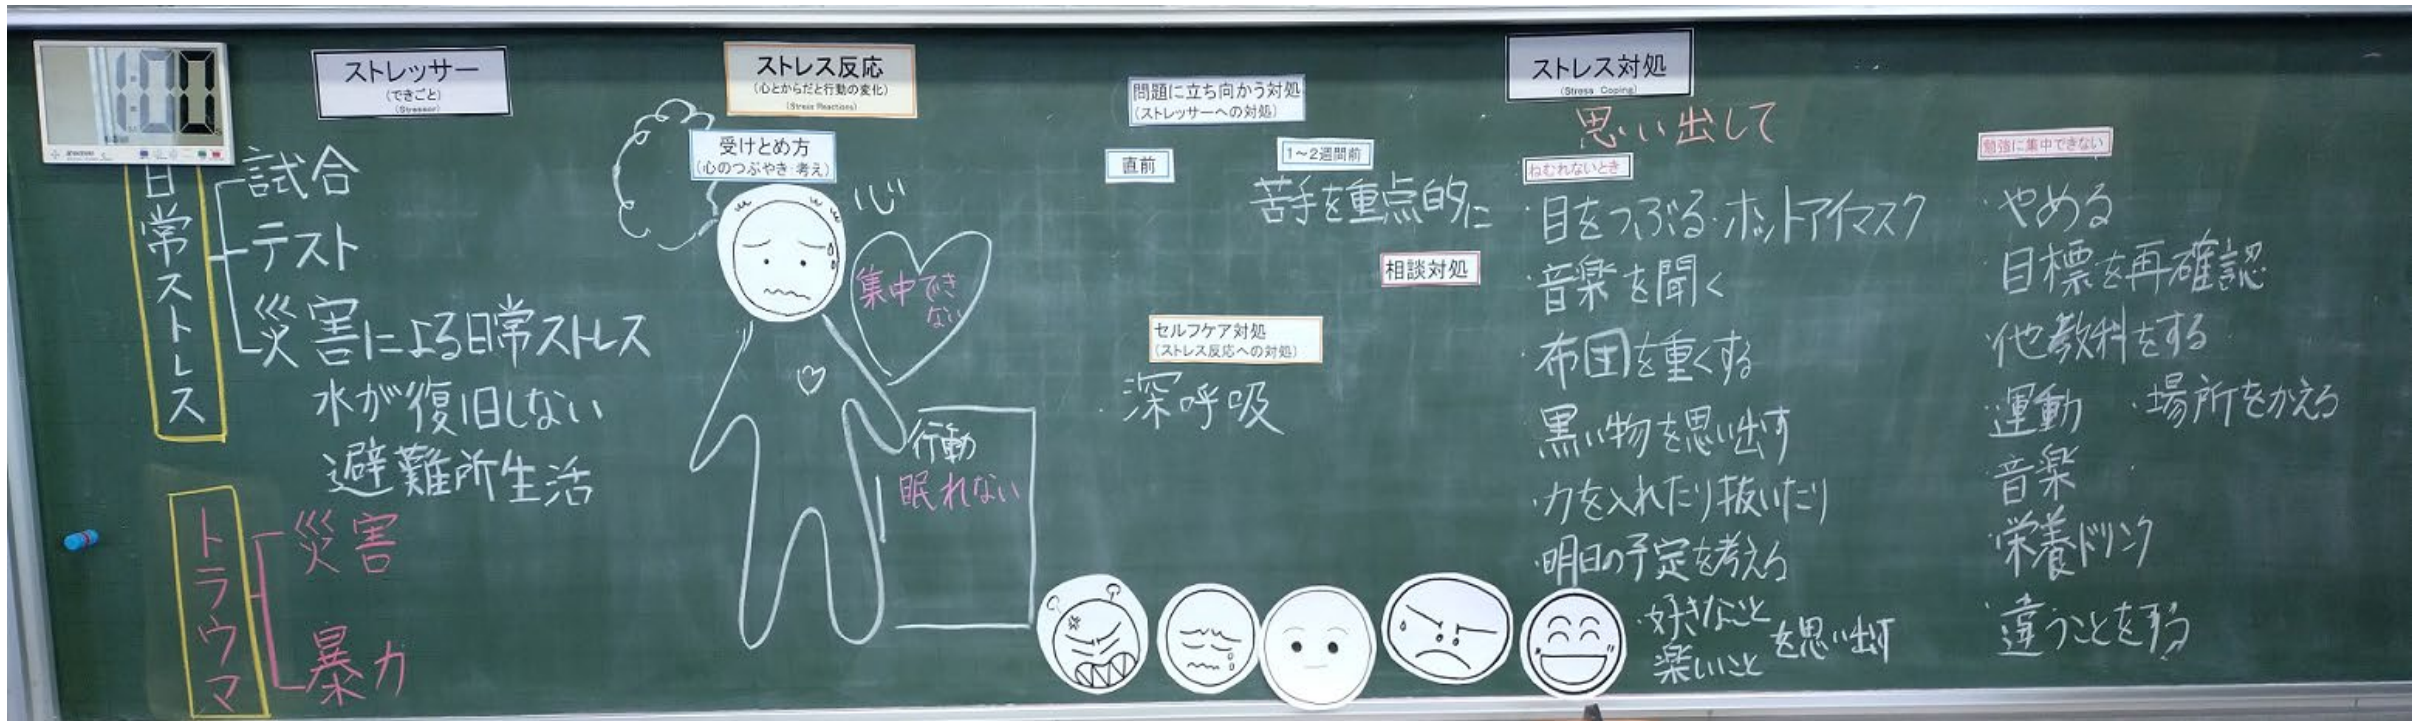 1:01
ストレッサー
(できごと)
(Stressor)
日常ストレス
試合
テスト
災害による日常ストレス
水が復旧しない
避難所生活
トラウマ
災害
暴力
ストレス反応
(心とからだと行動の変化)
(Stress Reactions)
受けとめ方
(心のつぶやき:考え)
心
集中でき
ない
行動
眠れない
問題に立ち向かう対処
(ストレッサーへの対処)
直前
1~2週間前
苦手を重点的に
相談対処
セルフケア対処
(ストレス反応への対処)
・深呼吸
ストレス対処
(Stress Coping)
思い出して
ねむれないとき
・目をつぶる・ホットアイマスク
・音楽を聞く
・布団を重くする
・黒い物を思い出す
・力を入れたり抜いたり
・明日の予定を考える
・好きなこと
楽しいこと
を思い出す
勉強に集中できない
・やめる
・目標を再確認
・他教科をする
・運動 ・場所をかえる
・音楽
・栄養ドリンク
・違うことをする